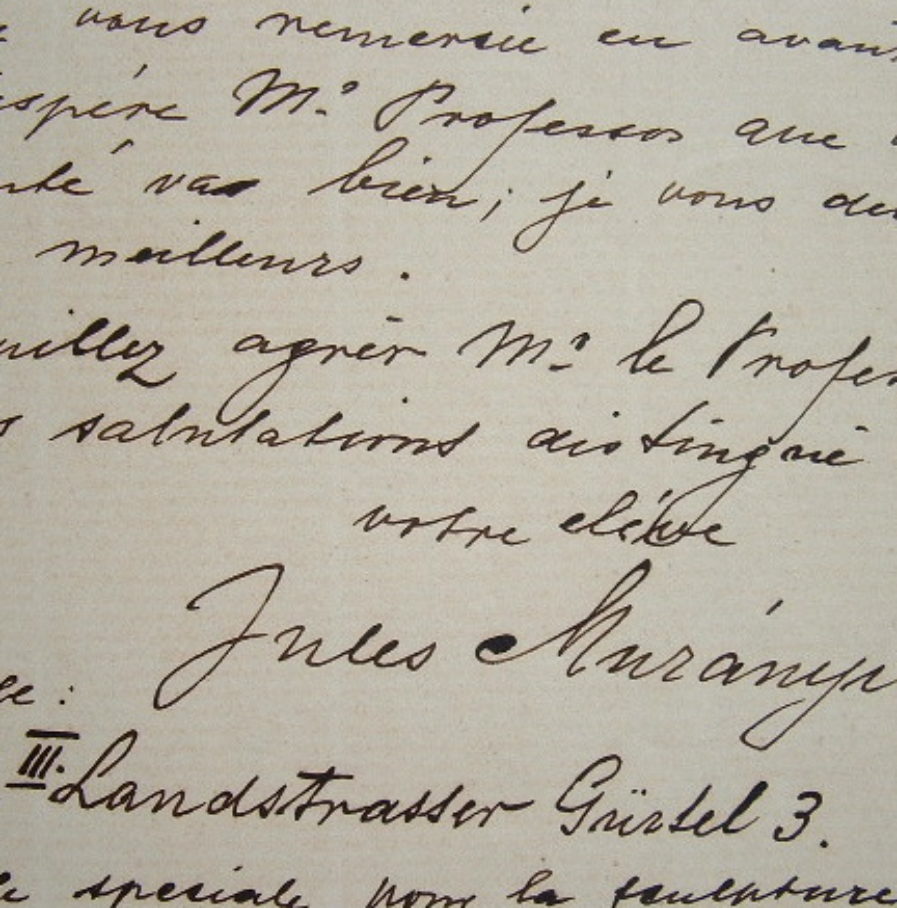 vous remersie en avan
spére Mr. Professor que
nté vas bien; je vous de
meilleurs.
uillez agrér Mr. le Profes
s salutations distingué
votre eléve
Jules Murányi
se:
III. Landstrasser Gürtel 3.
le speciale pour la sculpture